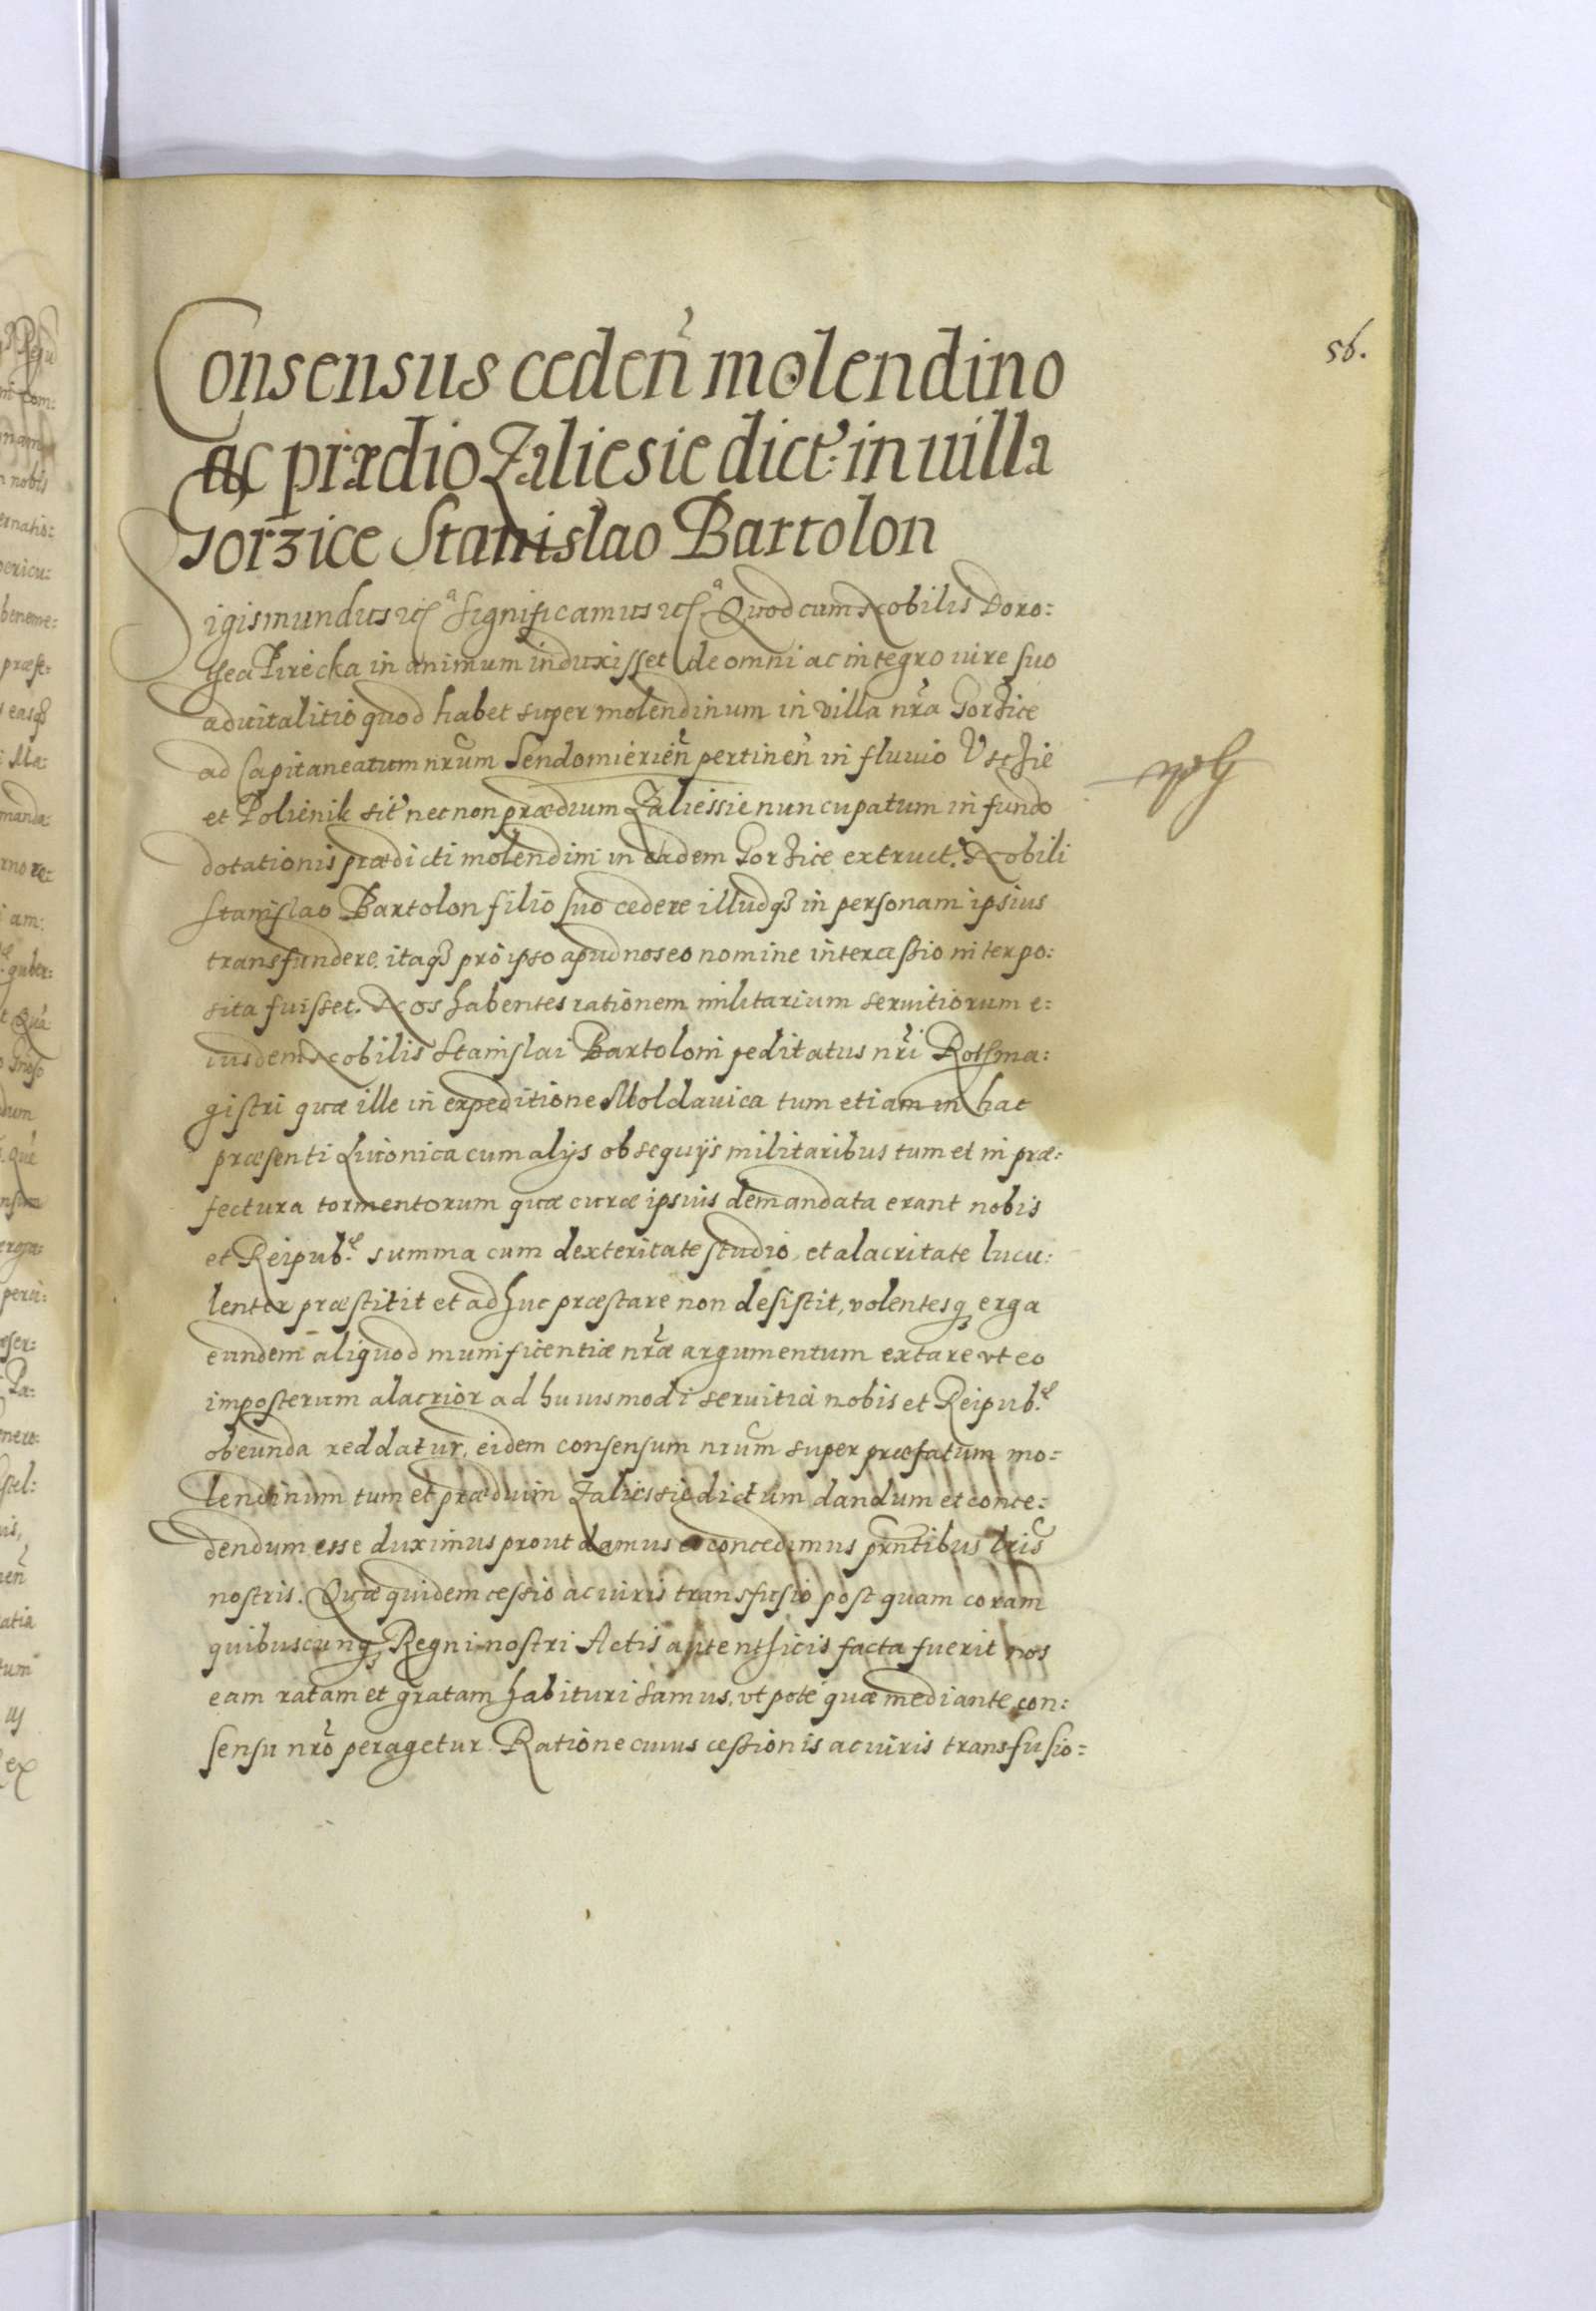 56.
Consensus ceden̄ molendino
ac prædio Zaliesie dict: in uilla
Gorzice Stanislao Bartolon
Sigismundus etc̃ᵃ Significamus etc̃ᵃ Quod cum Nobilis Doro:
thea Pirecka in animum induxisset de omni ac integro iure suo
aduitalitio quod habet super molendinum in villa nr̃a Gorzice
ad Capitaneatum nr̃um Sendomierien̄ pertinen̄ in fluuio Vsczie
et Polienik sit' necnon prædium Zaliessie nuncupatum in fundo
dotationis prædicti molendini in eadem Gorzice extruct. Nobili
Stanislao Bartolon filio suo cedere illudqȝ in personam ipsius
transfundere, itaqȝ pro ipso apud nos eo nomine intercessio interpo:
sita fuisset. Nos habentes rationem militarium seruitiorum e:
iusdem Nobilis Stanislai Bartoloni peditatus nr̃i Rothma:
gistri quæ ille in expeditione Moldauica tum etiam in hac
præsenti Liuonica cum alijs obsequijs militaribus tum et in præ:
fectura tormentorum quæ curæ ipsius demandata erant nobis
et Reipub:ᵉ summa cum dexteritate studio, et alacritate lucu:
lenter præstitit et adhuc præstare non desistit, volentesqȝ erga
eundem aliquod munificentiæ nr̃æ argumentum extare vt eo
imposterum alacrior ad huiusmodi seruitia nobis et Reipub:ᵉ
obeunda reddatur, eidem consensum nr̃um super præfatum mo=
lendinum tum et prædium Zaliessie dictum dandum et conce:
dendum esse duximus prout damus et concedimus pr̃ntibus lr̃is
nostris. Quæ quidem cessio ac iuris transfusio post quam coram
quibuscunqȝ Regni nostri Actis autenthicis facta fuerit nos
eam ratam et gratam habituri samus, vt pote quæ mediante con:
sensu nr̃o peragetur. Ratione cuius cessionis ac iuris transfusio=